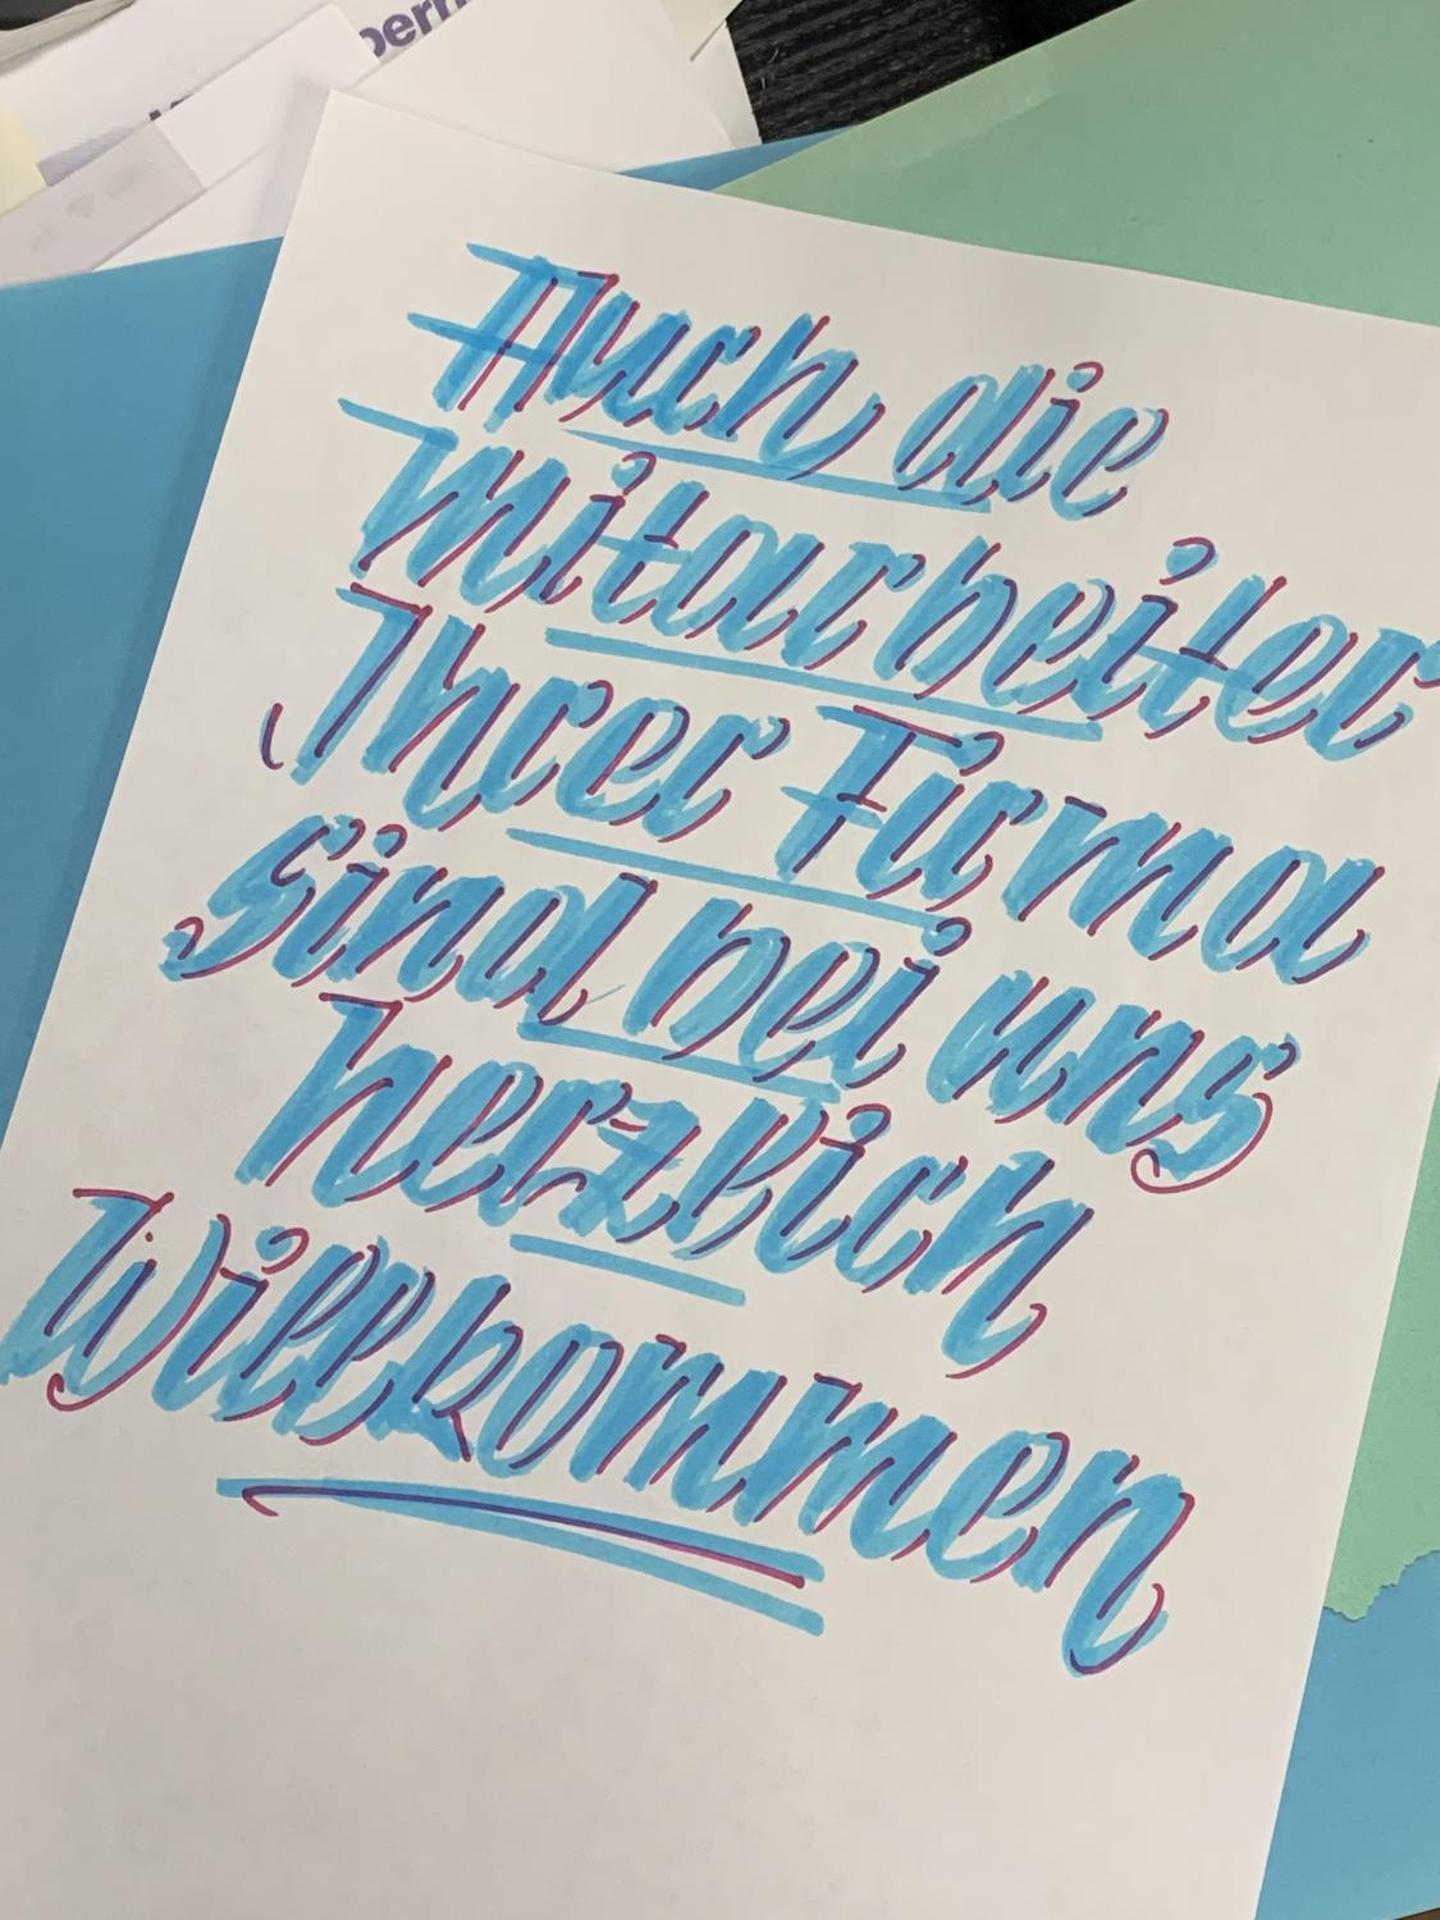 Auch die
Mitarbeiter
Ihrer Firma
sind bei uns
herzlich
Willkommen